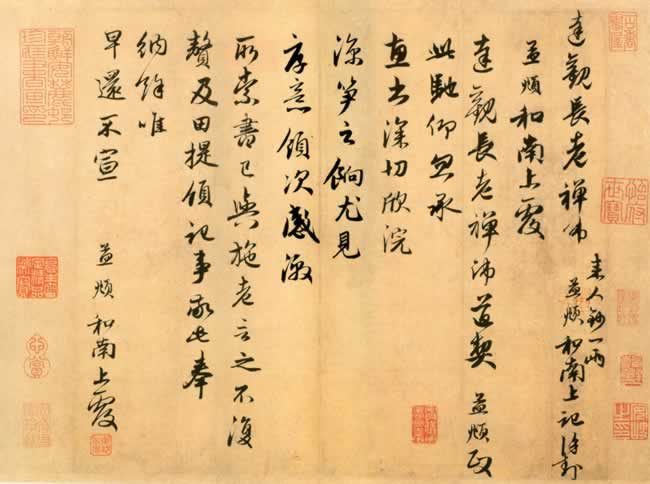 達觀長老禪師
孟頫和南上記謹封
來人鈔一兩
孟頫和南上覆
達觀長老禪師道契 孟頫政
此馳仰忽承
惠書深切欣浣
笋之餉尤見
厚意領次感激
所索書已與施老言之不復
贅及田提領記事 此奉
納餘唯
早還不宣 孟頫和南上覆